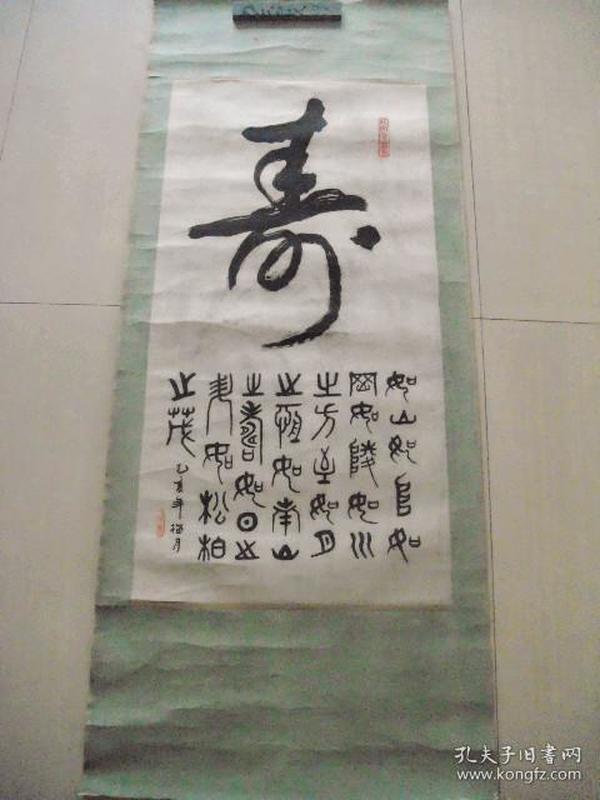 寿
如山如阜如
岡如陵如川
之方至如月
之恆如南山
之壽如日之
升如松柏
之茂
乙亥年 月
孔夫子旧書网
www.kongfz.com